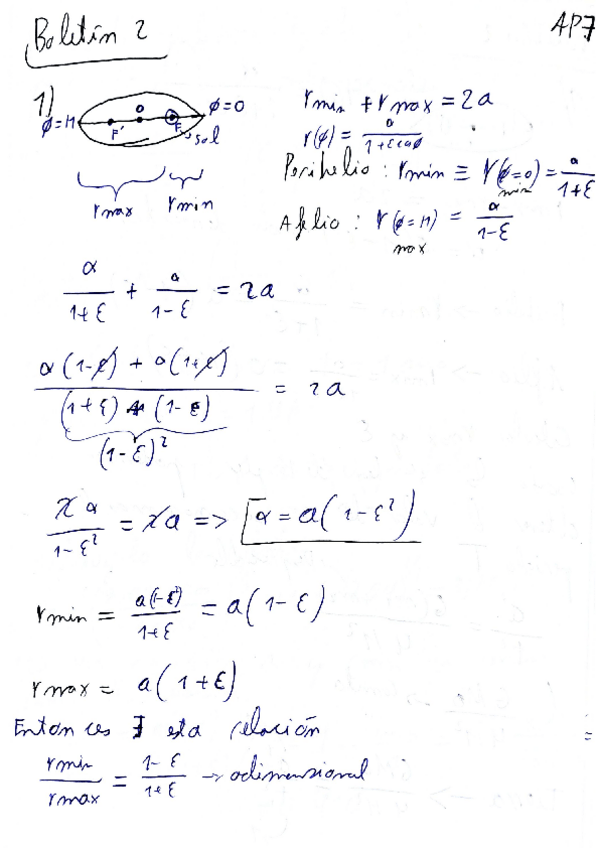 Boletín 2
AP7
1)
φ=π F' O F φ=0
sol
rmax rmin
rmin + rmax = 2a
r(φ) = α/(1+εcosφ)
Perihelio : rmin ≡ r(φ=0) = α/(1+ε)
min
Afelio : r(φ=π) = α/(1-ε)
max
α/(1+ε) + α/(1-ε) = 2a
(α(1-ε) + α(1+ε))/((1+ε)(1-ε)) = 2a
(1-ε)²
2α/(1-ε²) = 2a => α = a(1-ε²)
rmin = a(1-ε²)/(1+ε) = a(1-ε)
rmax = a(1+ε)
Entonces ∃ esta relación
rmin/rmax = (1-ε)/(1+ε) → adimensional
=